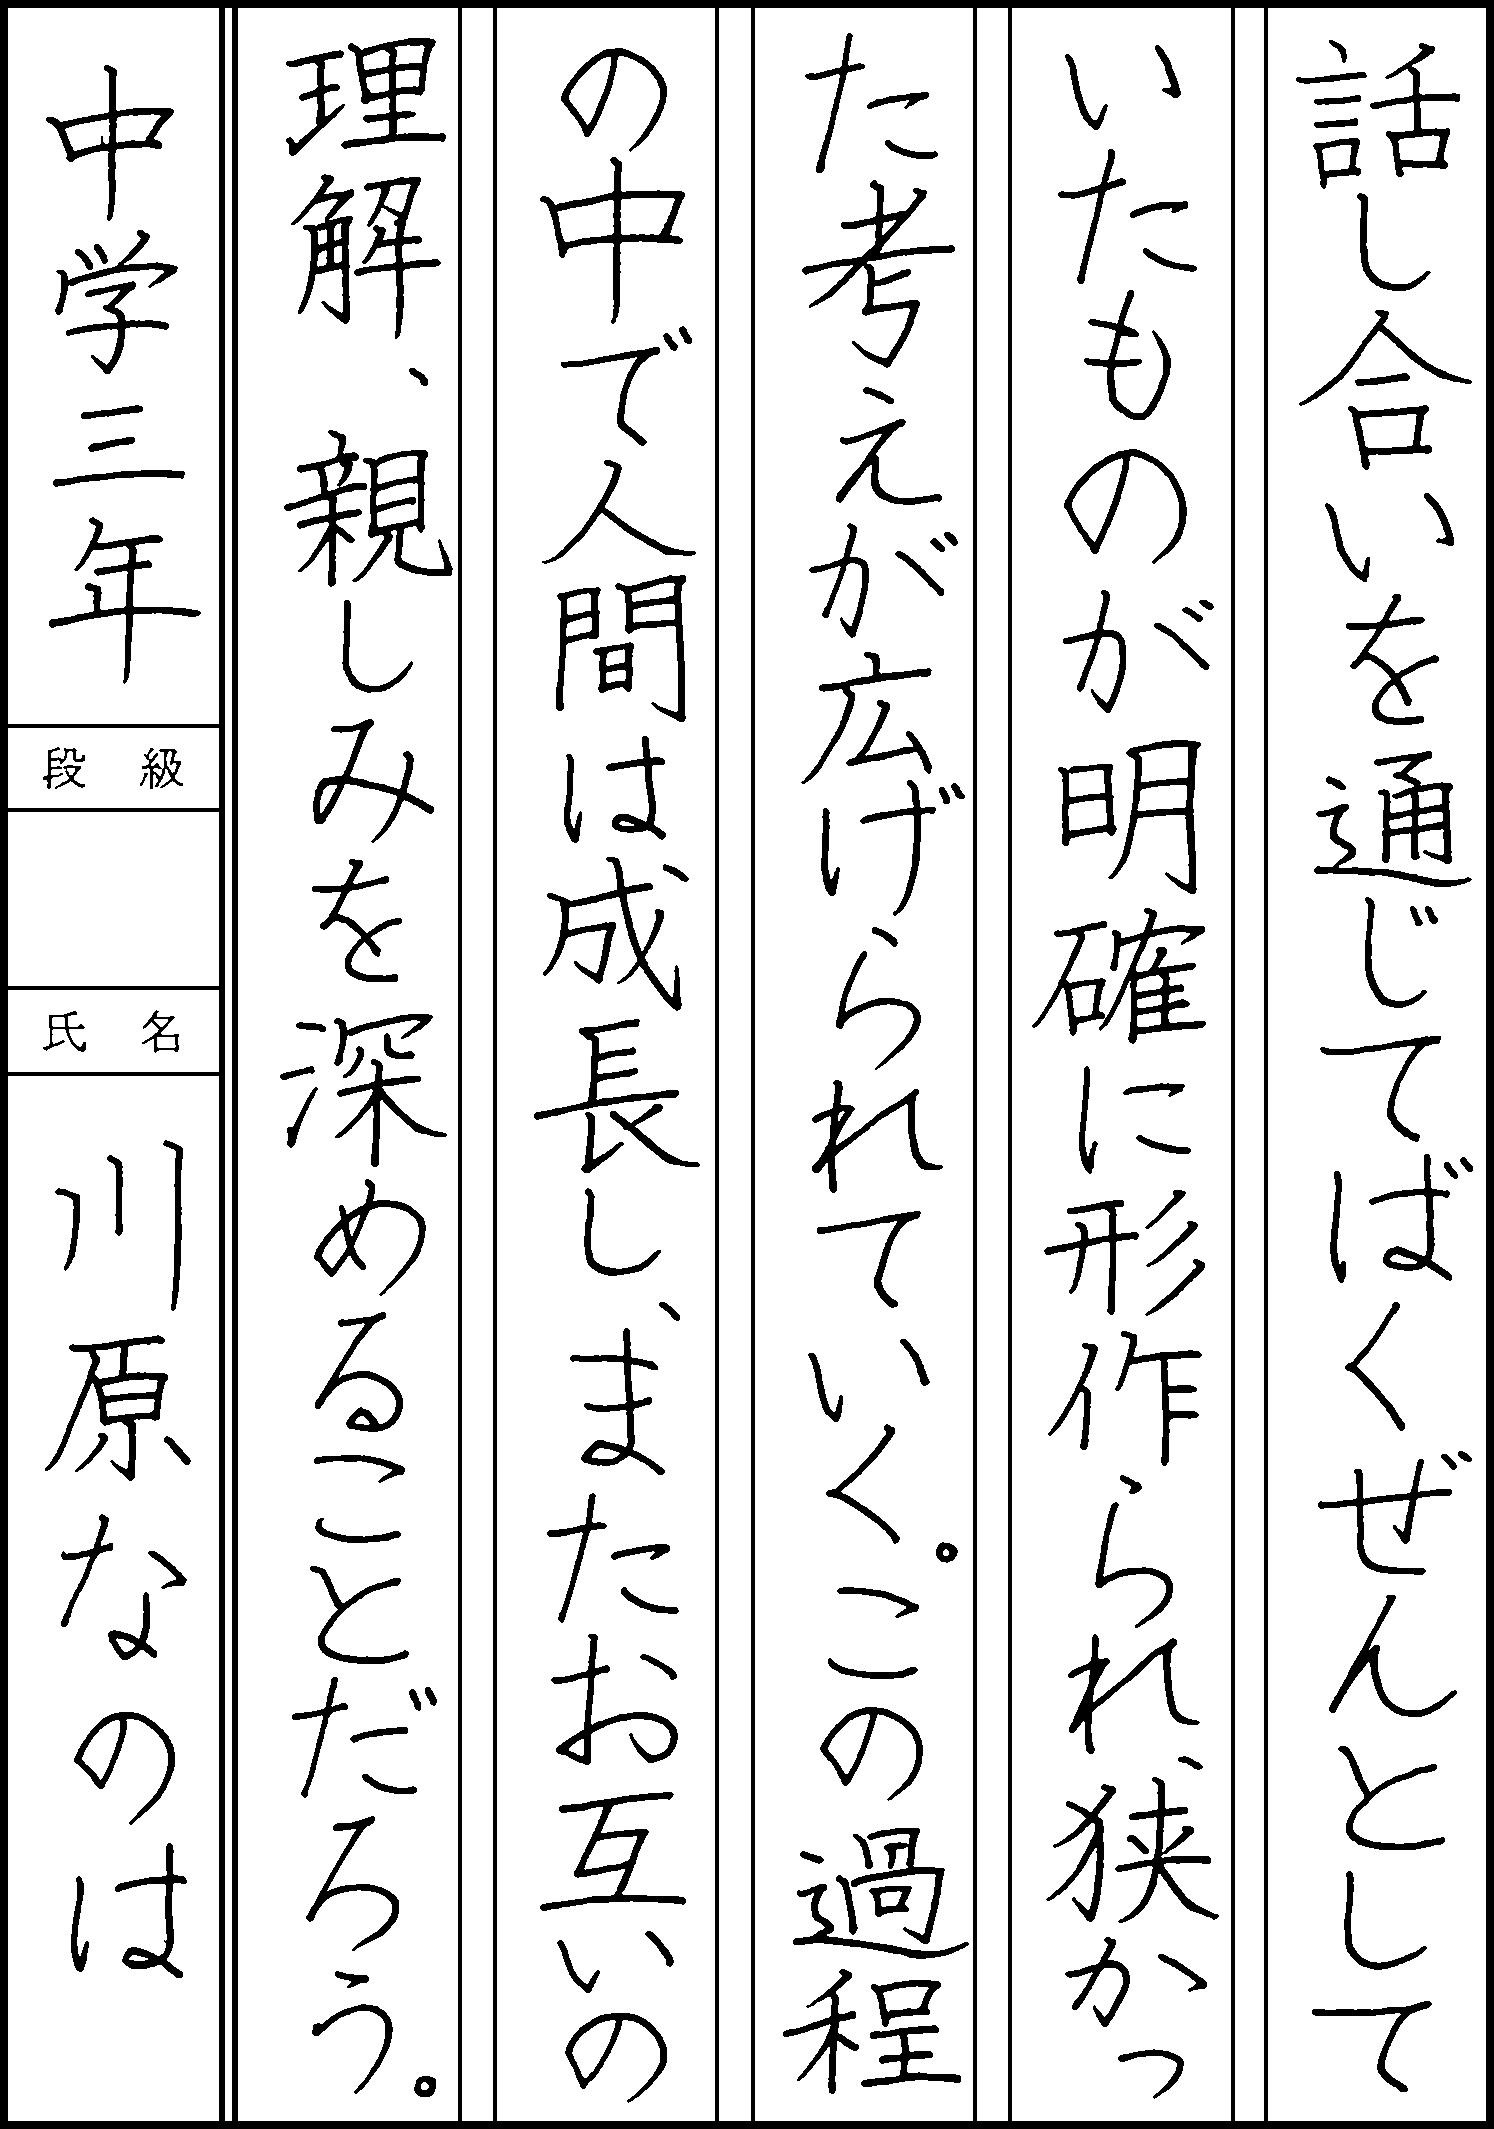 話し合いを通じてばくぜんとして
いたものが明確に形作られ、狭かっ
た考えが広げられていく。この過程
の中で人間は成長し、またお互いの
理解、親しみを深めることだろう。
中学三年
段級
氏名
川原なのは